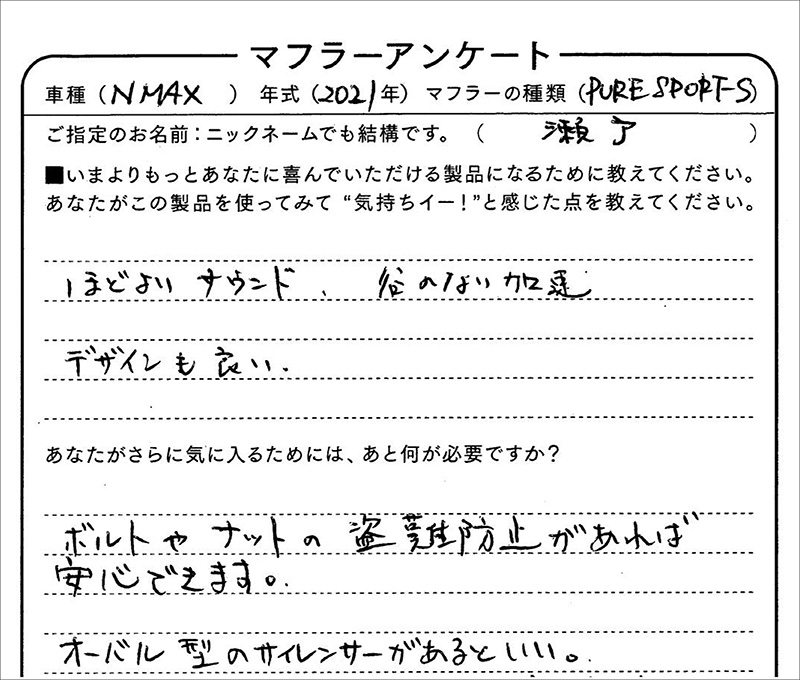 マフラーアンケート
車種（NMAX）年式（2021年）マフラーの種類（PURE SPORT-S）
ご指定のお名前：ニックネームでも結構です。（瀬了）
■いまよりもっとあなたに喜んでいただける製品になるために教えてください。
あなたがこの製品を使ってみて“気持ちイー！”と感じた点を教えてください。
ほどよいサウンド、谷のない加速
デザインも良い.
あなたがさらに気に入るためには、あと何が必要ですか？
ボルトやナットの盗難防止があれば
安心できます。
オーバル型のサイレンサーがあるといい。